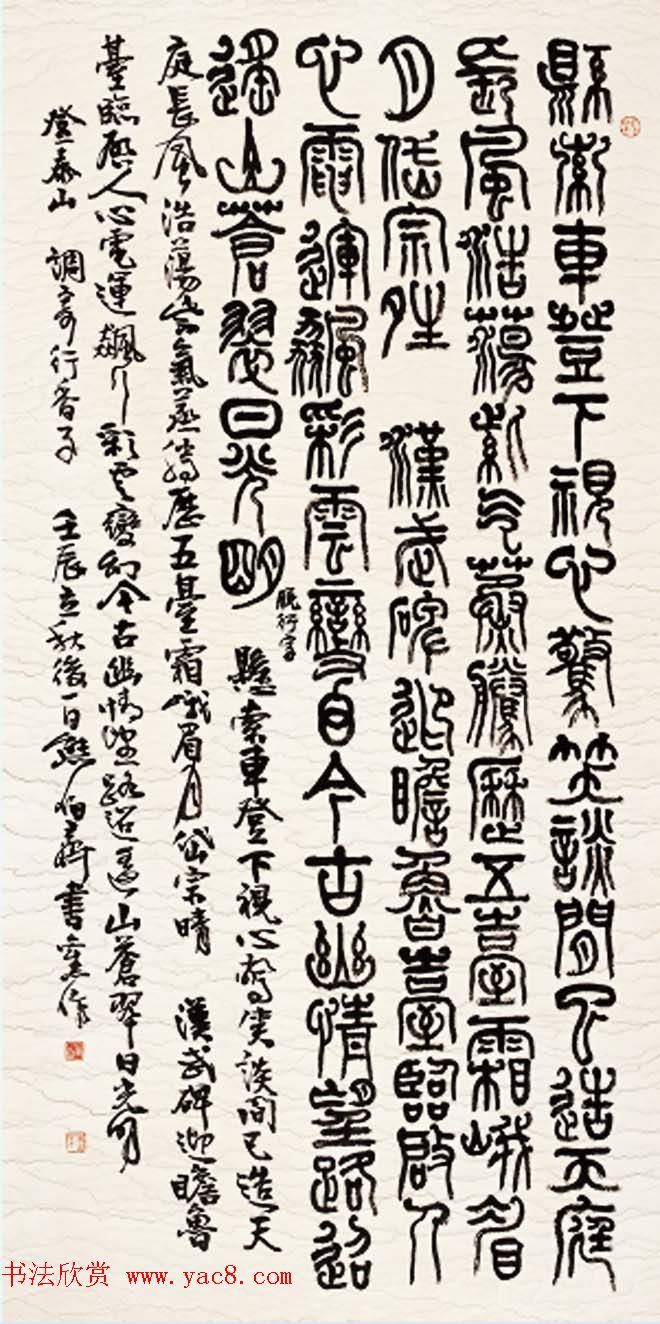 縣索車登下視心驚笑談間已造天庭
長風浩蕩紫气蒸騰歷五臺霜峨眉
月岱宗晴 漢武碑迎瞻魯臺臨啟人
心電運飆彩雲變幻今古幽情望路迢
遙山蒼翠日光明
脫行字
懸索車登下視心驚笑談間已造天
庭長風浩蕩紫氣蒸騰歷五臺霜峨眉月岱宗晴 漢武碑迎瞻魯
臺臨啟人心電運飆行彩雲變幻今古幽情望路迢遙山蒼翠日光明
登泰山 調寄行香子 壬辰立秋後一日熊伯齊書舊作
书法欣赏 www.yac8.com